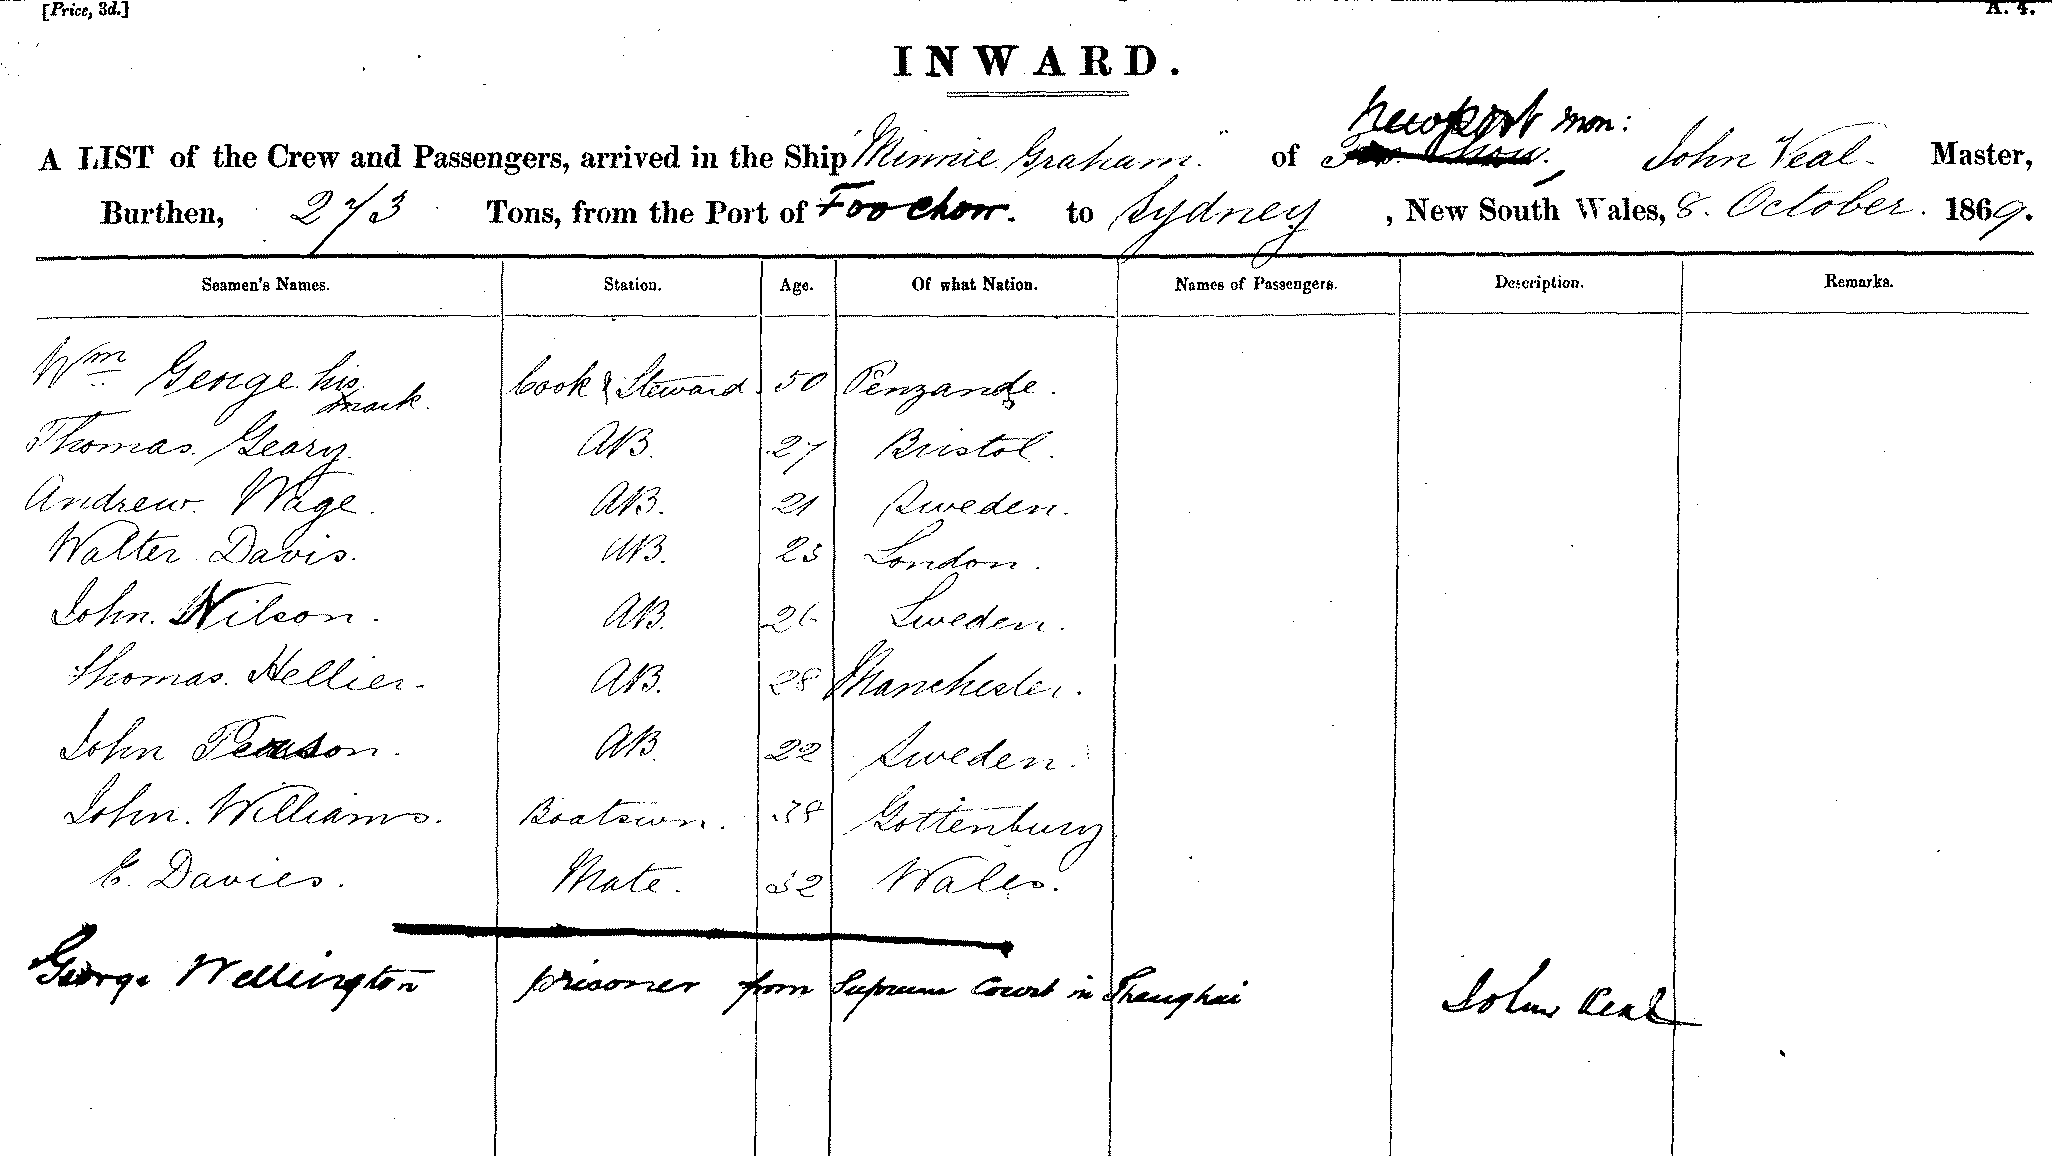 [Price, 3d.] A. 4.
INWARD.
Newport Mon:
A LIST of the Crew and Passengers, arrived in the Ship "Minnie Graham." of Foo Chow, John Veal. Master,
Burthen, 273 Tons, from the Port of Foo Chow. to Sydney, New South Wales, 8. October. 1869.
Seamen's Names. Station. Age. Of what Nation. Names of Passengers. Description. Remarks.
Wm George his Cook & Steward. 50 Penzance.
mark.
Thomas. Geary AB. 27 Bristol.
Andrew. Wage. AB. 21 Sweden.
Walter Davis. AB. 23 London.
John. Wilson. AB. 26 Sweden.
Thomas. Hellier. AB. 28 Manchester.
John AB. 22 Sweden.
John. Williams. Boatswn. 38 Gottenburg
E. Davies. Mate. 32 Wales.
George Wellington prisoner from Supreme Court in Shanghai John Veal